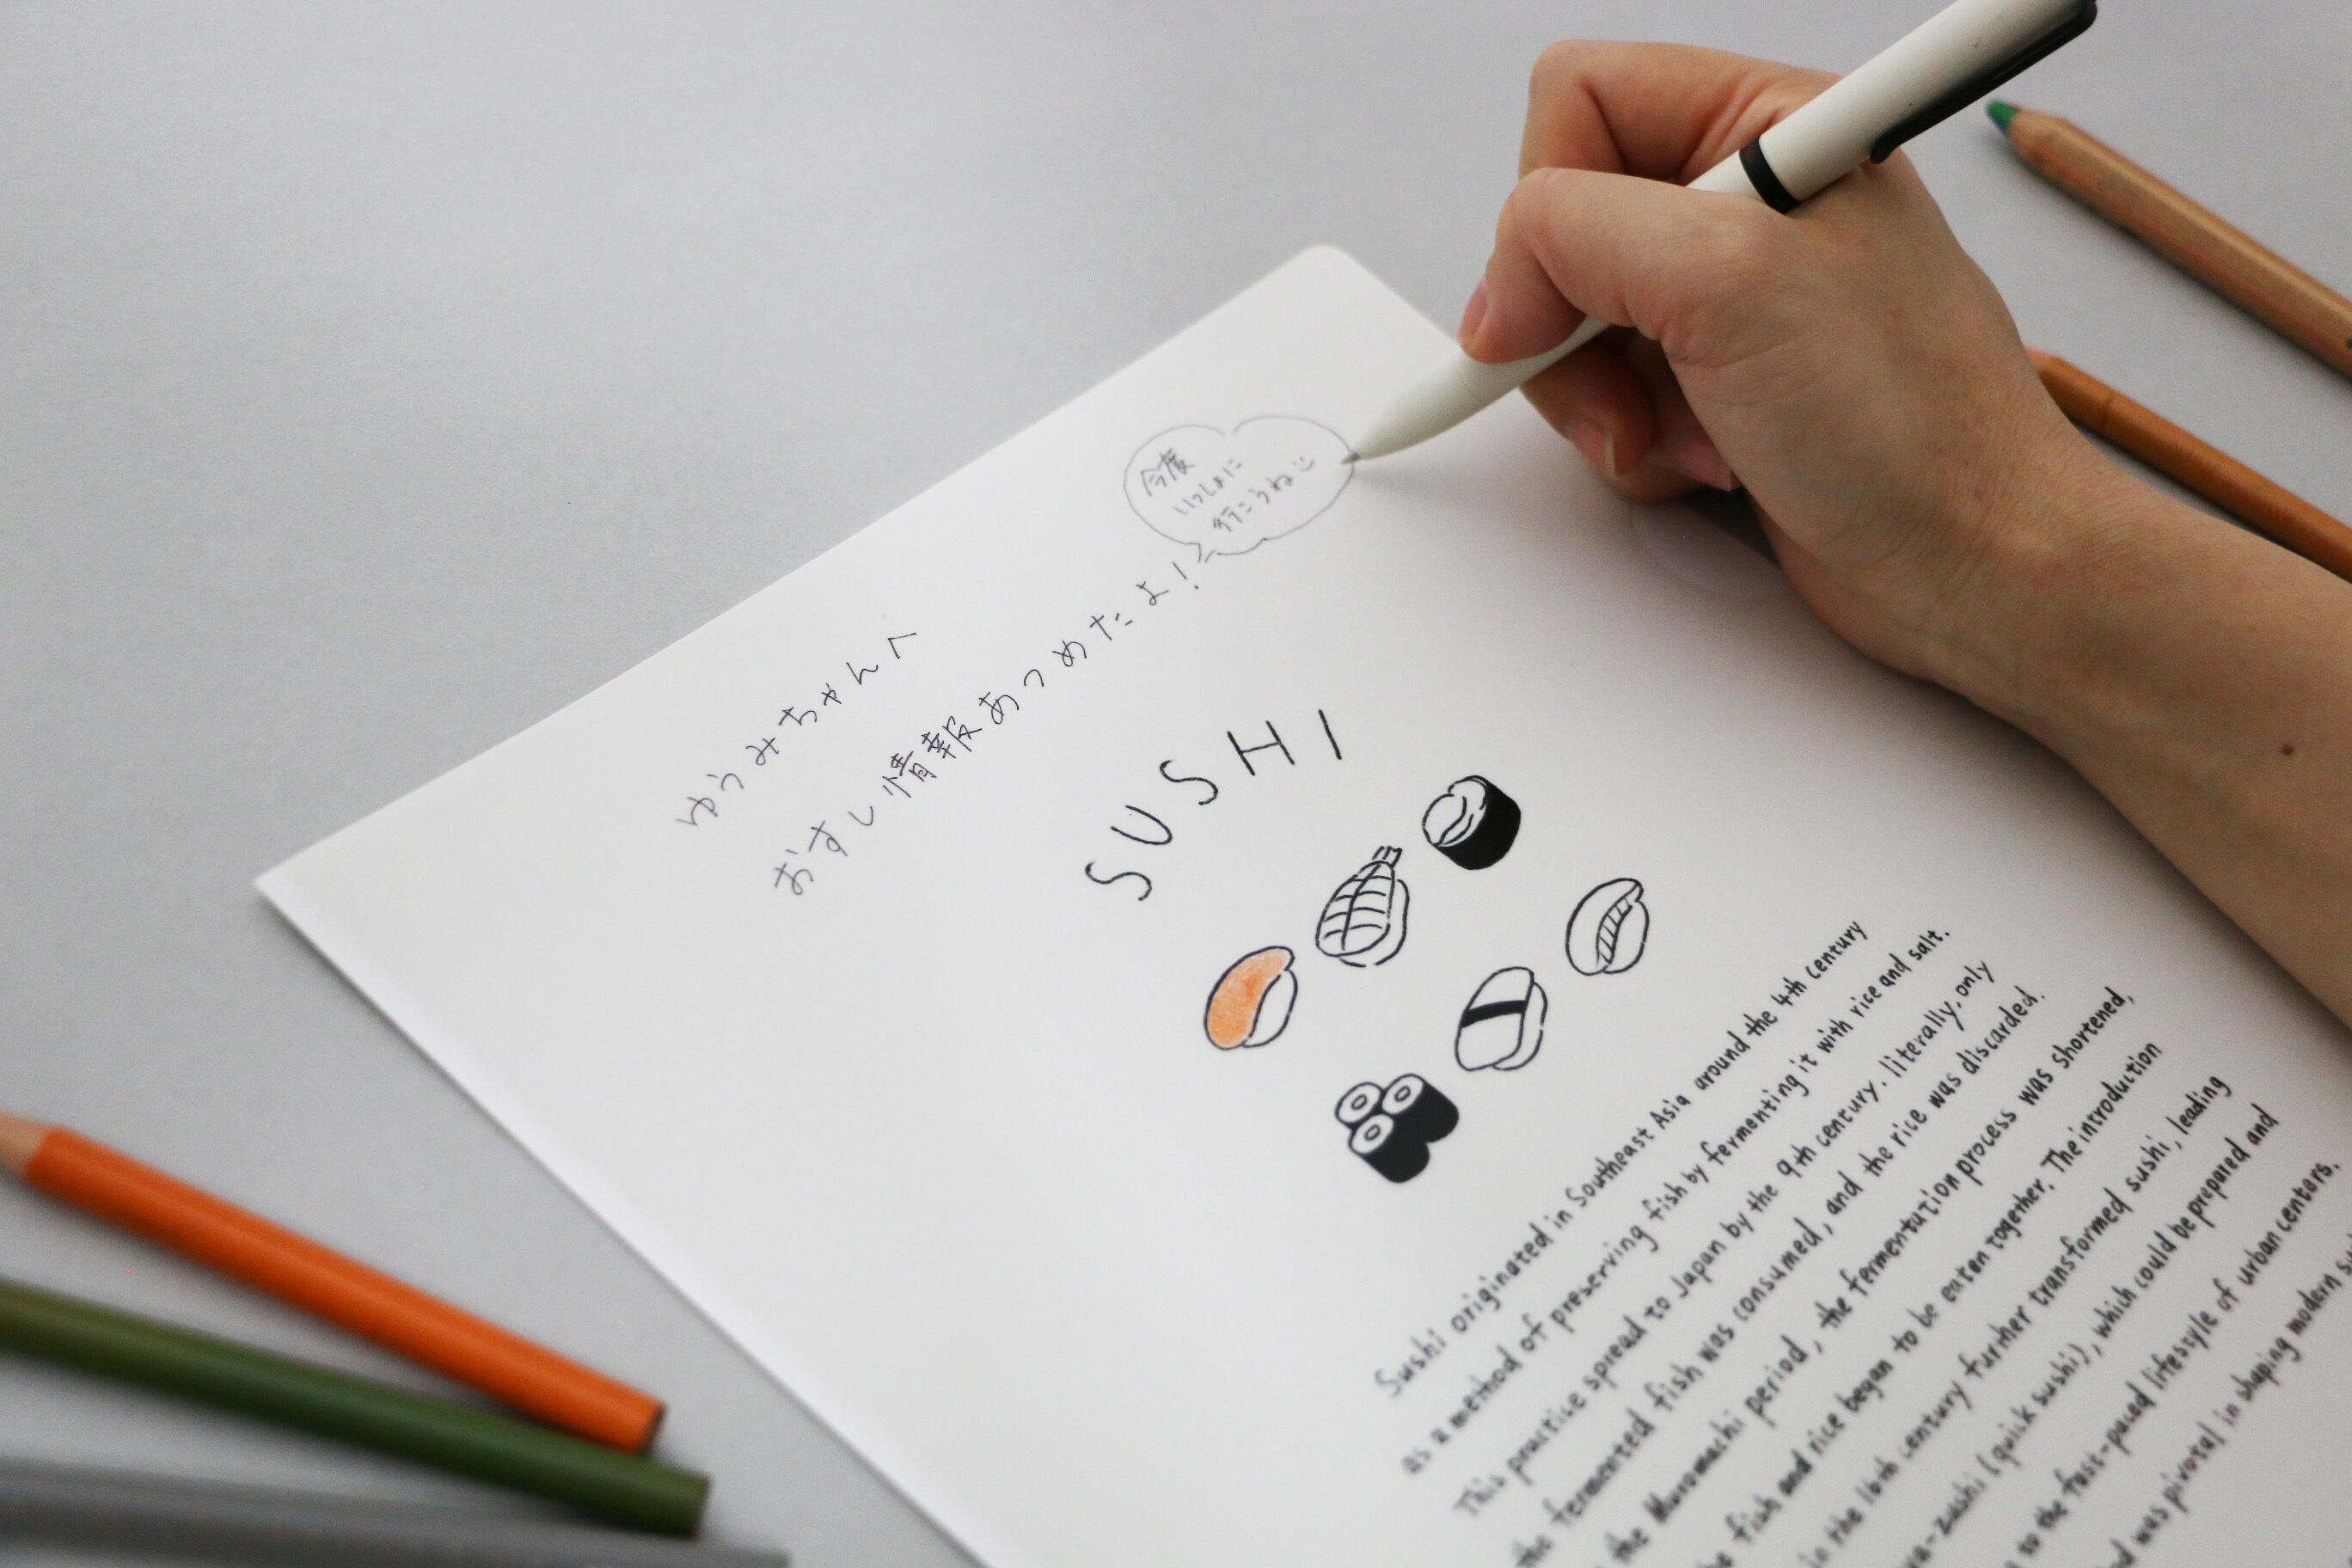 今度
いっしょに
行こうね
ゆうみちゃんへ
おすし情報あつめたよ！
SUSHI
Sushi originated in Southeast Asia around the 4th century
as a method of preserving fish by fermenting it with rice and salt.
This practice spread to Japan by the 9th century. literally, only
the fermented fish was consumed, and the rice was discarded.
the Muromachi period, the fermentution process was shortened,
fish and rice began to be eaten together. The introduction
in the 16th century further transformed sushi, leading
(quick sushi), which could be prepared and
to the fast-paced lifestyle of urban centers.
was pivotal in shaping modern